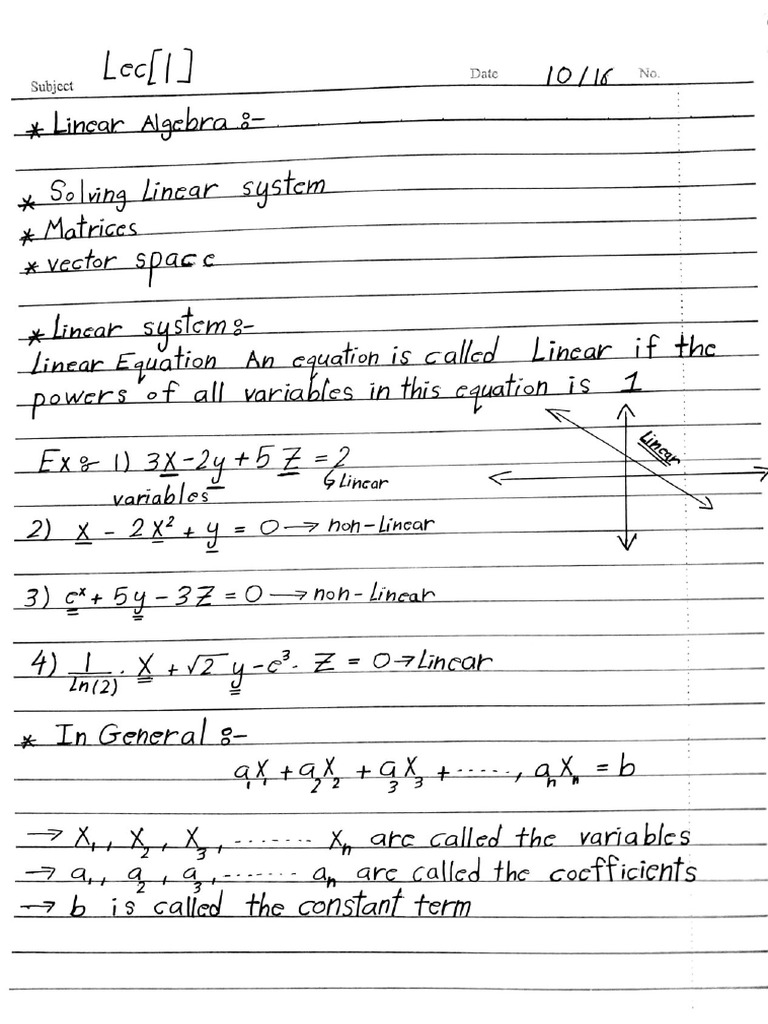 Subject Lec[1] Date 10/16 No.
* Linear Algebra :-
* Solving Linear system
* Matrices
* vector space
* Linear system :-
Linear Equation An equation is called Linear if the
powers of all variables in this equation is 1
Linear
Ex :- 1) 3x - 2y + 5z = 2
↳ Linear
variables
2) x - 2x² + y = 0 → non-Linear
3) eˣ + 5y - 3z = 0 → non-Linear
4) 1/ln(2) . x + √2 y - e³ . z = 0 → Linear
* In General :-
a₁x₁ + a₂x₂ + a₃x₃ + ......, aₙxₙ = b
→ x₁, x₂, x₃, ........ xₙ are called the variables
→ a₁, a₂, a₃, ........ aₙ are called the coefficients
→ b is called the constant term